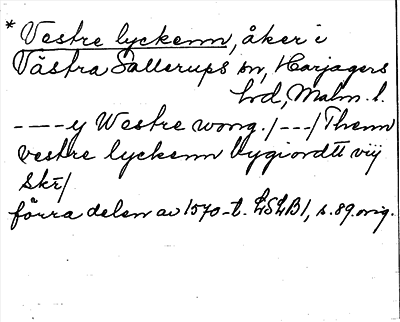 * Vestre lyckenn, åker i
Västra Sallerups sn, Harjagers
hd, Malm. l.
----y Westre wong./---/Thenn
vestre lyckenn bygiordtt viij
skr/
förra delen av 1570-t. LSLB1, s. 89. orig.